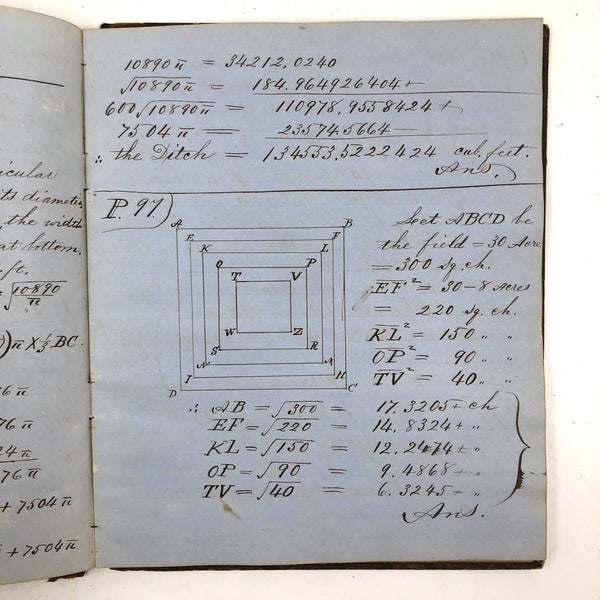 icular
its diamete
the width
at bottom.
ft.
= √10890/π
)π X 1/3 BC.
6π
76π
24π
76π
+ 7504π
+ 7504π
10890π = 34212,0240
√10890π = 184.964926404+
600√10890π = 110978,9558424+
7504π = 23574.5664—
∴ the Ditch = 134553,5222424 cub. feet.
Ans.
P. 97.)
A B
E F
K L
O P
T V
W Z
S R
N M
I H
D C
Let ABCD be
the field = 30 Acre
= 300 sq. ch.
EF² = 30 – 8 acres
= 220 sq. ch.
KL² = 150 " "
OP² = 90 " "
TV² = 40 " "
∴ AB = √300 = 17.3205+ ch
EF = √220 = 14,8324+ "
KL = √150 = 12,2474+ "
OP = √90 = 9.4868+ "
TV = √40 = 6.3245+ "
Ans.